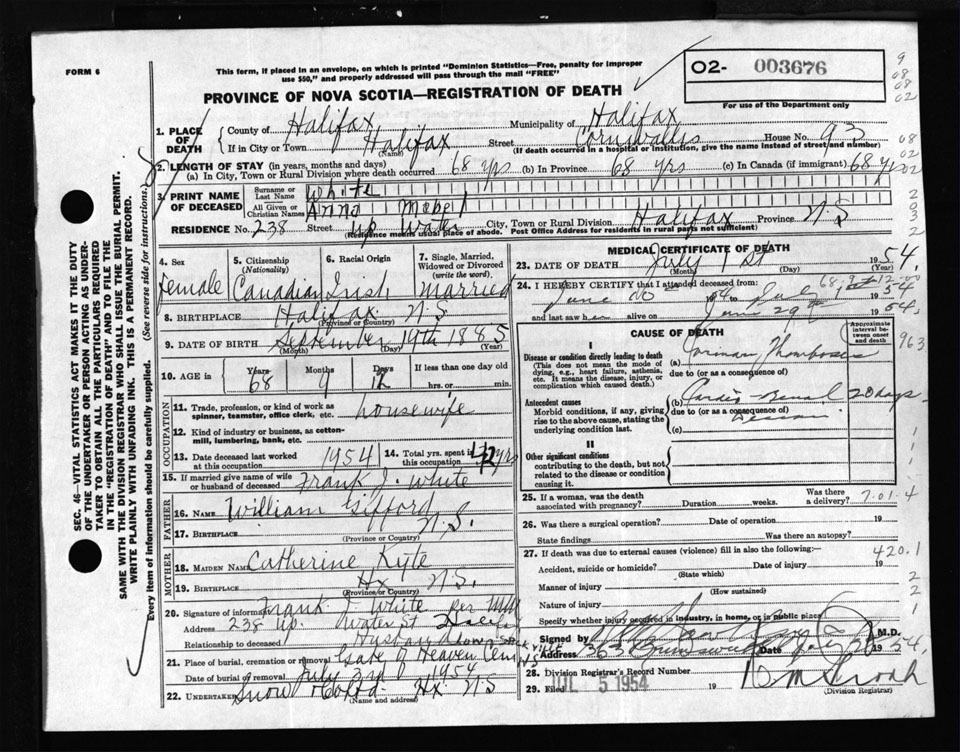 FORM 6
This form, if placed in an envelope, on which is printed "Dominion Statistics—Free, penalty for improper
use $50," and properly addressed will pass through the mail "FREE"
PROVINCE OF NOVA SCOTIA—REGISTRATION OF DEATH
02- 003676
For use of the Department only
9
08
08
02
1. PLACE OF DEATH
County of Halifax Municipality of Halifax
If in City or Town Halifax Street Cornwallis House No. 93
(Name) (If death occurred in a hospital or institution, give the name instead of street and number)
2. LENGTH OF STAY (in years, months and days)
(a) In City, Town or Rural Division where death occurred 68 yrs (b) In Province 68 yrs (c) In Canada (if immigrant) 68 yrs
3. PRINT NAME OF DECEASED
Surname or Last Name White
All Given or Christian Names Anna Mabel
RESIDENCE No. 238 Street Up Water City, Town or Rural Division Halifax Province N.S
(Residence means usual place of abode. Post Office Address for residents in rural parts not sufficient)
4. Sex Female
5. Citizenship (Nationality) Canadian
6. Racial Origin Irish
7. Single, Married, Widowed or Divorced (write the word) Married
8. BIRTHPLACE Halifax N.S
(Province or Country)
9. DATE OF BIRTH September 19th 1885
(Month) (Day) (Year)
10. AGE in Years 68 Months 9 Days 12 If less than one day old
hrs. or min.
OCCUPATION
11. Trade, profession, or kind of work as
spinner, teamster, office clerk, etc. housewife
12. Kind of industry or business, as cotton-
mill, lumbering, bank, etc.
13. Date deceased last worked
at this occupation 1954
14. Total yrs. spent in
this occupation yrs
15. If married give name of wife
or husband of deceased Frank J. White
FATHER
16. NAME William Gifford
17. BIRTHPLACE N.S.
(Province or Country)
MOTHER
18. MAIDEN NAME Catherine Kyte
19. BIRTHPLACE Hx N.S.
(Province or Country)
20. Signature of informant Frank J White per
Address 238 Up. Water St Halifax
Relationship to deceased Husband
21. Place of burial, cremation or removal Gate of Heaven Cem
Date of burial or removal July 3rd 1954
22. UNDERTAKER Snow & Co Ltd. Hx. N.S
(Name and address)
MEDICAL CERTIFICATE OF DEATH
23. DATE OF DEATH July 1st 1954.
(Month) (Day) (Year)
24. I HEREBY CERTIFY that I attended deceased from:
June 1954 to July 1st 1954
and last saw her alive on June 29th 1954.
CAUSE OF DEATH
Approximate interval between onset and death
I
Disease or condition directly leading to death
(This does not mean the mode of dying, e.g., heart failure, asthenia, etc. It means the disease, injury, or complication which caused death.)
(a) Coronary Thrombosis
due to (or as a consequence of)
Antecedent causes
Morbid conditions, if any, giving rise to the above cause, stating the underlying condition last.
(b) Cardio-Renal 20 days
due to (or as a consequence of)
(c)
II
Other significant conditions
contributing to the death, but not related to the disease or condition causing it.
963
25. If a woman, was the death
associated with pregnancy? Duration weeks. Was there a delivery?
7.01.4
26. Was there a surgical operation? Date of operation 19
State findings Was there an autopsy?
27. If death was due to external causes (violence) fill in also the following:—
420.1
Accident, suicide or homicide? Date of injury 19
(State which)
Manner of injury
(How sustained)
Nature of injury
Specify whether injury occurred in industry, in home, or in public place
Signed by M.D.
Address 363 Brunswick Date 1954.
28. Division Registrar's Record Number
29. Filed JUL 5 1954 19
(Division Registrar)
SEC. 46—VITAL STATISTICS ACT MAKES IT THE DUTY
OF THE UNDERTAKER OR PERSON ACTING AS UNDER-
TAKER TO OBTAIN ALL THE PARTICULARS REQUIRED
IN THE "REGISTRATION OF DEATH" AND TO FILE THE
SAME WITH THE DIVISION REGISTRAR WHO SHALL ISSUE THE BURIAL PERMIT.
WRITE PLAINLY WITH UNFADING INK. THIS IS A PERMANENT RECORD.
Every item of information should be carefully supplied. (See reverse side for instructions.)